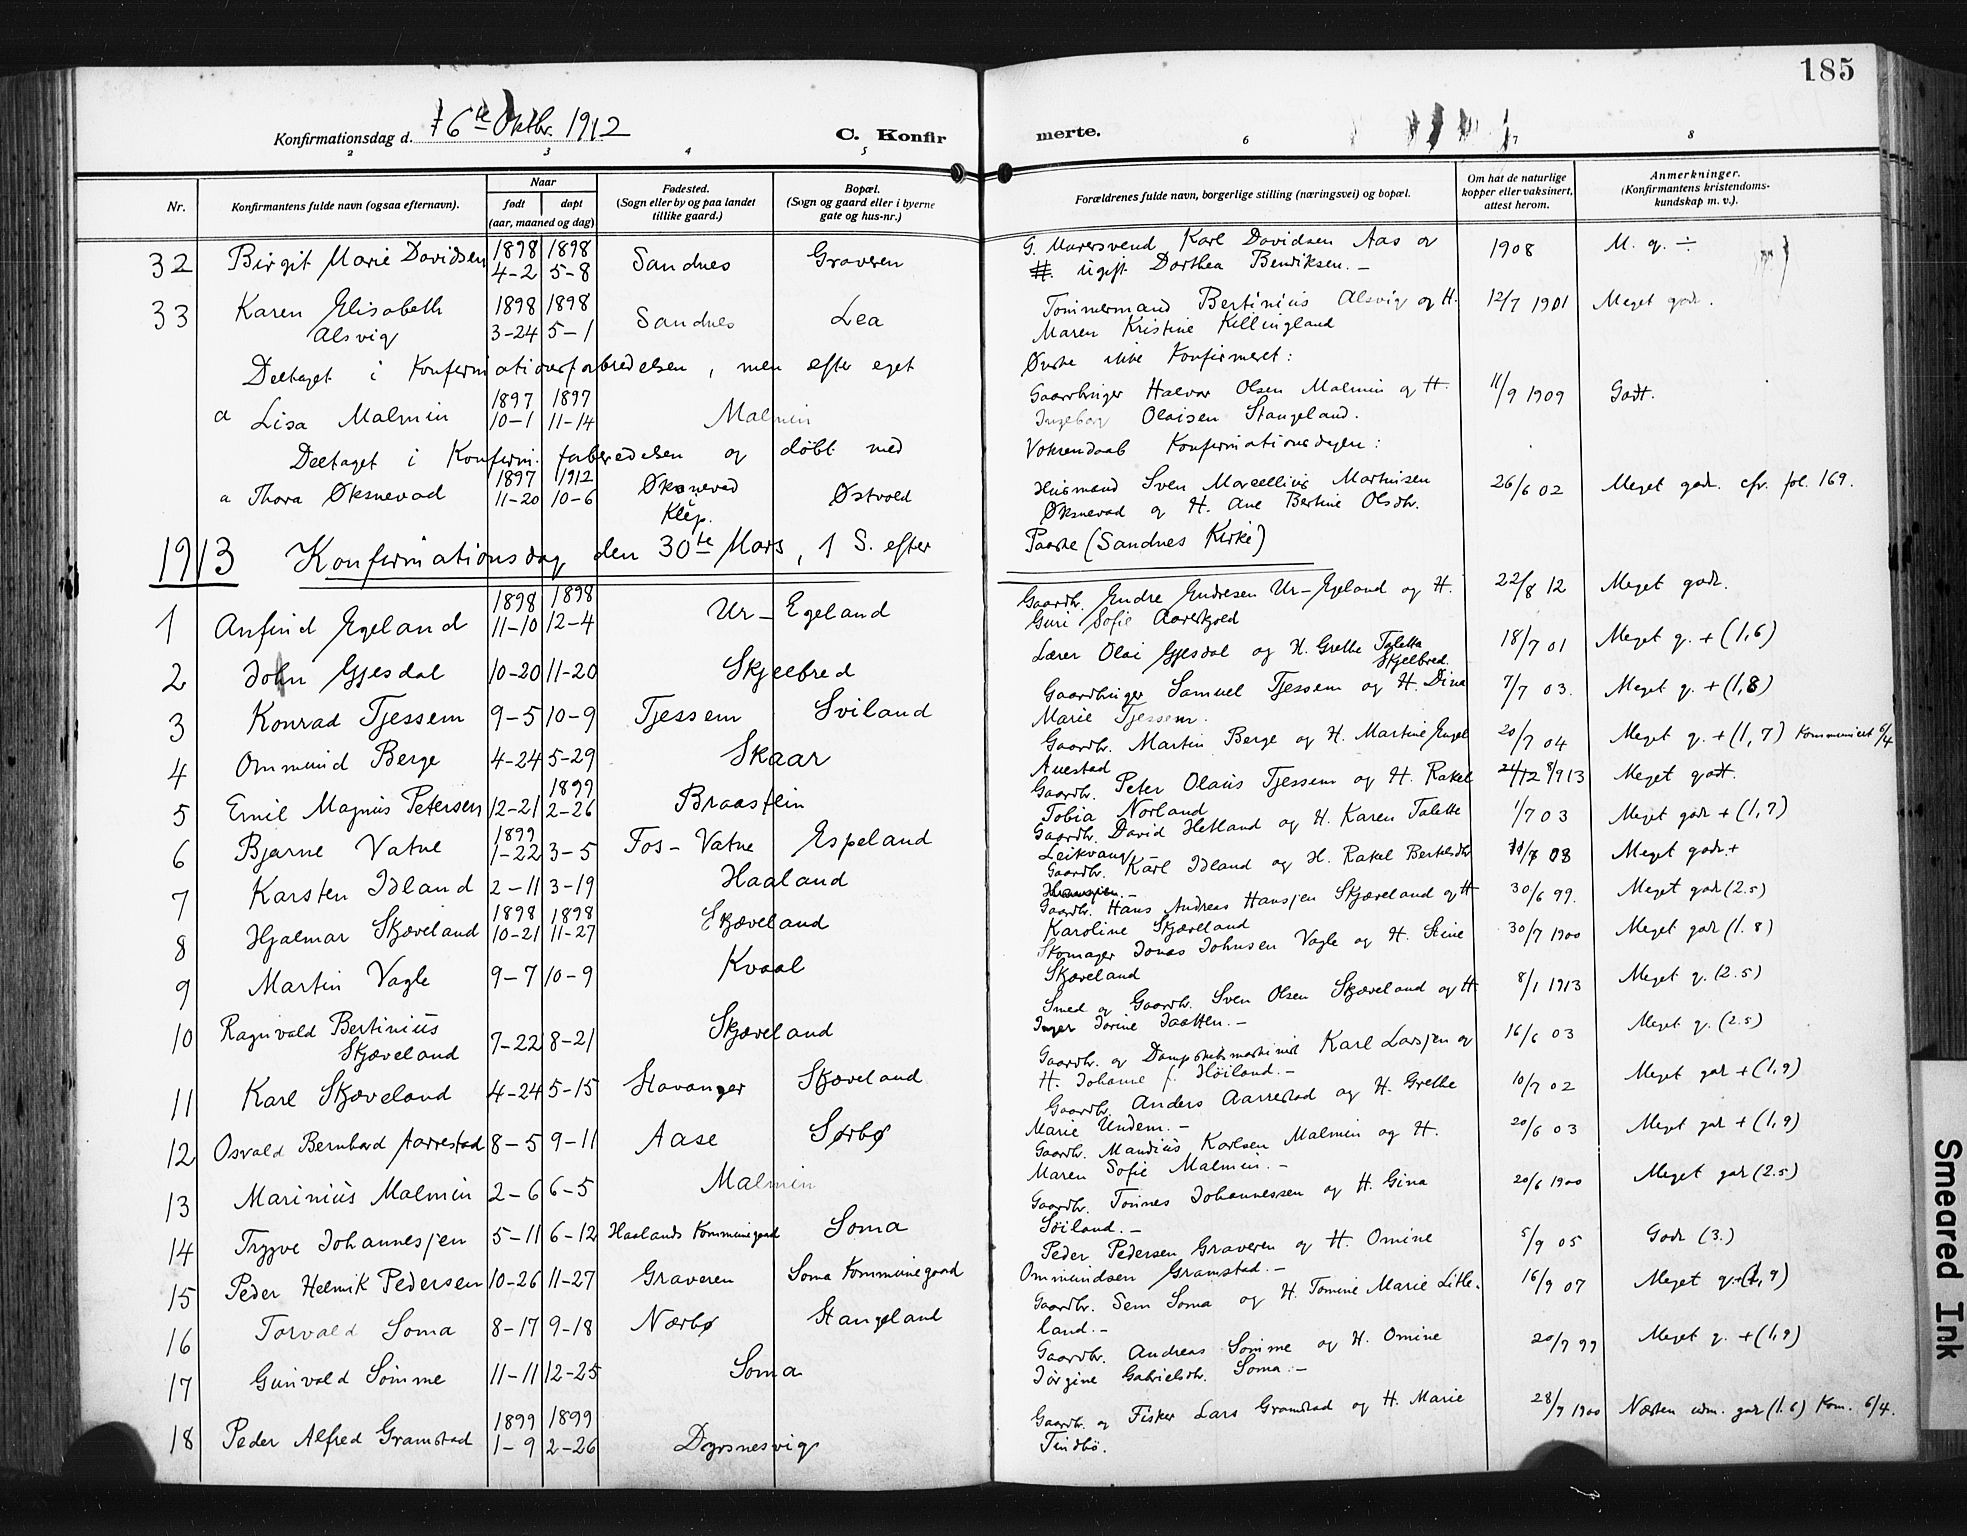 185
Konfirmationsdag d. 6te Oktbr. 1912
C. Konfirmerte.
2 3 4 5 6 7 8
Nr.
Konfirmantens fulde navn (ogsaa efternavn).
Naar
født døpt
(aar, maaned og dag)
Fødested.
(Sogn eller by og paa landet
tillike gaard.)
Bopæl.
(Sogn og gaard eller i byerne
gate og hus-nr.)
Forældrenes fulde navn, borgerlige stilling (næringsvei) og bopæl.
Om hat de naturlige
kopper eller vaksinert,
attest herom.
Anmerkninger.
(Konfirmantens kristendoms-
kundskap m. v.).
32 Birgit Marie Davidsen 1898 4-2 1898 5-8 Sandnes Graveren G. Murersvend Karl Davidsen Aas og 1908 M. g. ÷
ugift Dorthea Bendiksen. -
33 Karen Elisabeth Alsvig 1898 3-24 1898 5-1 Sandnes Lea Tømmermand Bertinius Alsvig og H. 12/7 1901 Meget godt.
Maren Kristine Killingland
Deltaget i Konfirmationsforberedelsen, men efter eget Ønske ikke Konfirmeret:
a Lisa Malmin 1897 10-1 1897 11-14 Malmin Gaardbruger Halvor Olsen Malmin og H. 11/9 1909 Godt.
Ingeborg Olaisen Stangeland.
Deltaget i Konfirm. forberedelsen og døbt med Voksendaab Konfirmationsdagen:
a Thora Øksnevad 1897 11-20 1912 10-6 Øksnevad Klep. Østvold Husmand Sven Marcellius Martinsen 26/6 02 Meget godt. cfr. fol. 169.
Øksnevad og H. Ane Bertine Olsdtr.
1913 Konfirmationsdag den 30te Mars, 1 S. efter Paaske (Sandnes Kirke)
1 Anfind Egeland 1898 11-10 1898 12-4 Ur-Egeland Gaardbr. Endre Endresen Ur-Egeland og H. 22/8 12 Meget godt.
Guri Sofie Aareskjold
2 John Gjesdal 10-20 11-20 Skjelbred Lærer Olai Gjesdal og H. Grethe Taletta Skjelbred. 18/7 01 Meget g. + (1,6)
3 Konrad Tjessem 9-5 10-9 Tjessem Sviland Gaardbruger Samuel Tjessem og H. Dina 7/7 03. Meget g. + (1,8)
Marie Tjessem.
4 Ommund Berge 4-24 5-29 Skaar Gaardbr. Martin Berge og H. Martine Engel 20/7 04 Meget g. + (1,7) Kommunicert 6/4
Auestad
5 Emil Magnus Petersen 12-21 1899 2-26 Braastein Gaardbr. Peter Olaus Tjessem og H. Rakel 24/12 8/9 13 Meget godt.
Tobia Norland
6 Bjarne Vatne 1899 1-22 3-5 Fos-Vatne Espeland Gaardbr. David Hetland og H. Karen Talette 1/7 03 Meget godt + (1,7)
Leikvang -
7 Karsten Idland 2-11 3-19 Haaland Gaardbr. Karl Idland og H. Rakel Bertelsdtr 11/7 08 Meget godt. +
Hansjen. -
8 Hjalmar Skjæveland 1898 10-21 1898 11-27 Skjæveland Gaardbr. Hans Andreas Hansjen Skjæveland og H 30/6 99. Meget godt (2.5)
Karoline Skjæveland
9 Martin Vagle 9-7 10-9 Kvaal Skomager Jonas Johnsen Vagle og H. Stine 30/7 1900 Meget godt (1.8)
Skjæveland
10 Ragnvald Bertinius Skjæveland 7-22 8-21 Skjæveland Smed og Gaardbr. Sven Olsen Skjæveland og H 8/1 1913 Meget g. (2.5)
Inger Jorine Jaatten. -
11 Karl Skjæveland 4-24 5-15 Stavanger Skjæveland Gaardbr. og Dampskibsmaskinist Karl Larsjen og 16/6 03 Meget g. (2.5)
H. Johanne f. Høiland. -
12 Osvald Bernhard Aarrestad 8-5 9-11 Aase Sørbø Gaardbr. Anders Aarrestad og H. Grethe 10/7 02 Meget godt + (1,9)
Marie Undem. -
13 Marinius Malmin 2-6 6-5 Malmin Gaardbr. Maudius Karlsen Malmin og H. 20/6 03 Meget godt + (1,9)
Maren Sofie Malmin. -
14 Trygve Johannesjen 5-11 6-12 Haalands Kommunegaard Soma Gaardbr. Tønnes Johannessen og H. Gina 20/6 1900 Meget godt (2.5)
Søiland. -
15 Peder Helmik Pedersen 10-26 11-27 Graveren Soma Kommunegaard Peder Pedersen Graveren og H. Omine 5/9 05 Godt (3.)
Ommundsen Gramstad. -
16 Torvald Soma 8-17 9-18 Nærbø Stangeland Gaardbr. Sem Soma og H. Tomine Marie Litle- 16/9 07 Meget g. + (1,9)
land. -
17 Gunvald Sømme 11-11 12-25 Soma Gaardbr. Andreas Sømme og H. Omine 20/7 99 Meget g. + (1,9)
Jørgine Gabrielsdtr. Soma. -
18 Peder Alfred Gramstad 1899 1-9 1899 2-26 Dyrsnesvig Gaardbr. og Fisker Lars Gramstad og H. Marie 28/7 1900 Næsten udm. godt (1.6) Kom. 6/4.
Tindbø.
Smeared Ink